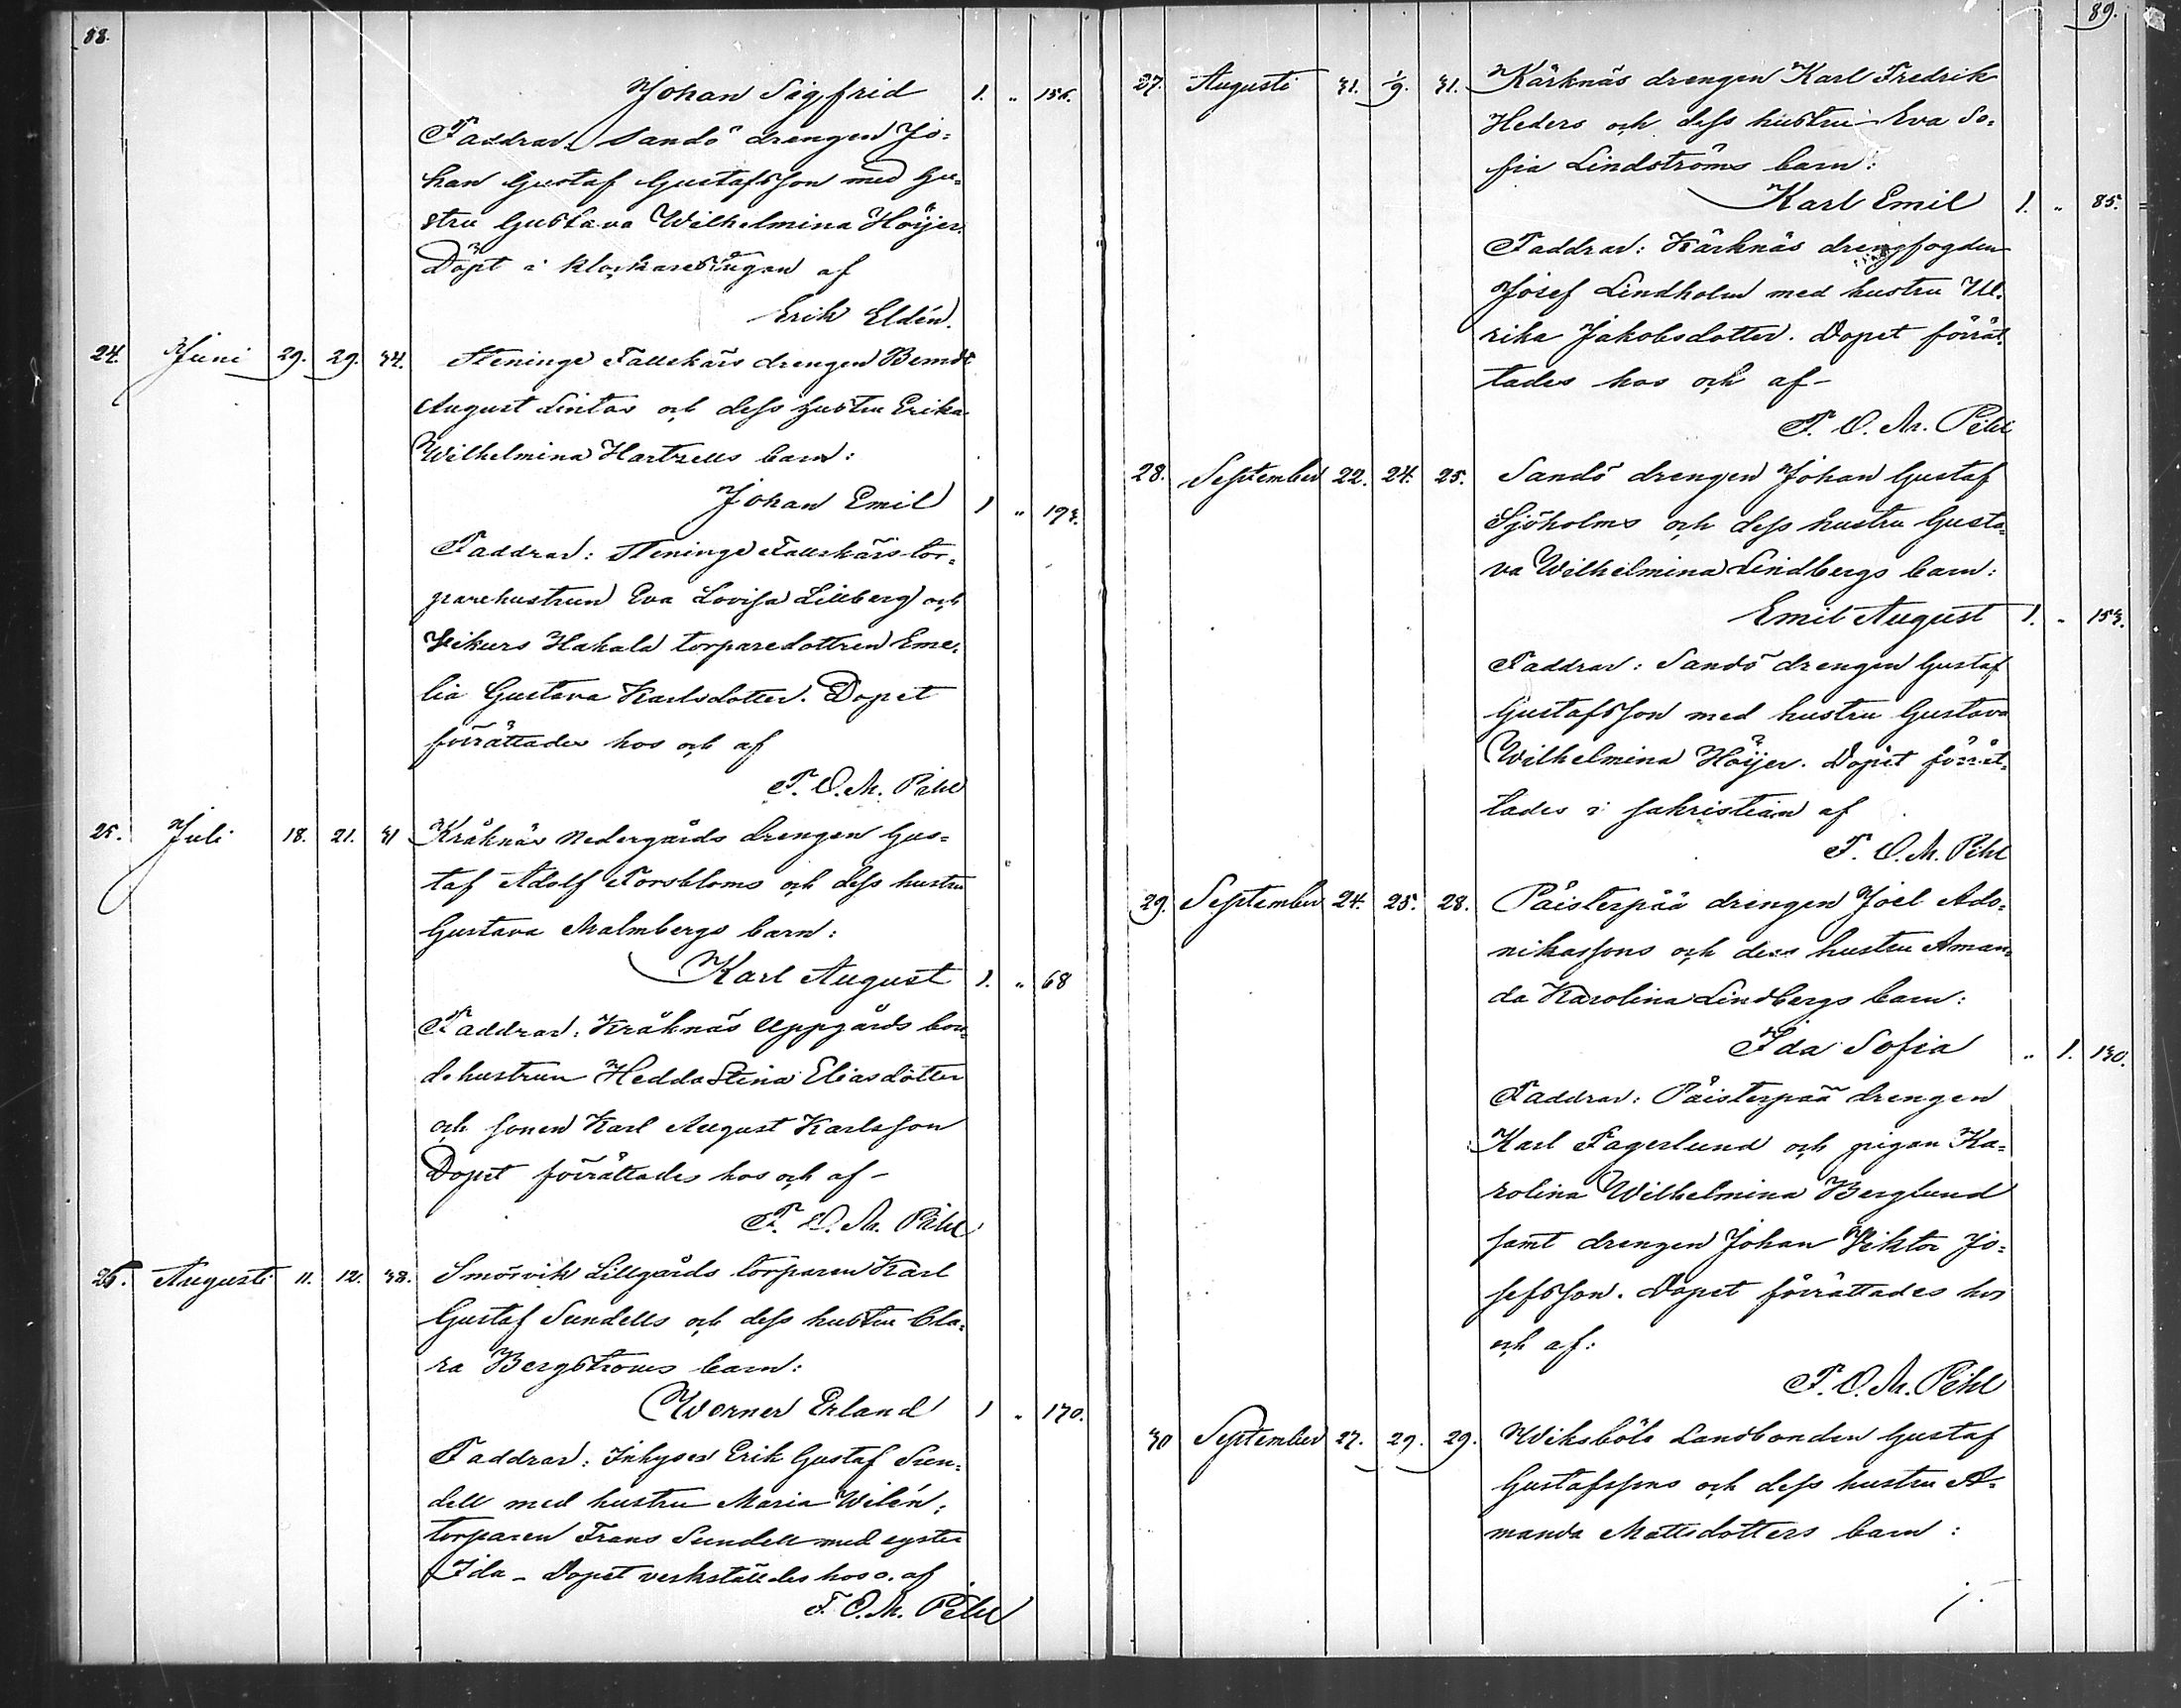 88.
Johan Sigfrid 1. " 156.
Faddrar: Sandö drengen Jo=
han Gustaf Gustafsson med hu=
stru Gustava Wilhelmina Höijer.
Döpt i klockarestugan af
Erik Eldén.
24. Juni 29. 29. 34. Steninge Fallskärs drengen Berndt
August Lintos och dess hustru Erika
Wilhelmina Hartzells barn:
Johan Emil 1 " 193.
Faddrar: Steninge Fallskärs tor=
parehustrun Eva Lovisa Lillberg och
Vikurs Hakala torparedottren Eme=
lia Gustava Karlsdotter. Dopet
förrättades hos och af
F. O. M. Pihl
25. Juli 18. 21. 31 Kråknäs Nedergårds drengen Gus=
taf Adolf Forsbloms och dess hustru
Gustava Malmbergs barn:
Karl August 1. " 68
Faddrar: Kråknäs Uppgårds bon=
dehustrun Hedda Stina Eliasdotter
och sonen Karl August Karlsson
Dopet förrättades hos och af –
F. O. M. Pihl
26. Augusti 11. 12. 38. Smörvik Lillgårds torparen Karl
Gustaf Sundells och dess hustru Cla=
ra Bergströms barn:
Werner Erland 1 " 170.
Faddrar: Inhyses Erik Gustaf Sun=
dell med hustru Maria Wilén;
torparen Frans Sundell med syster
Ida – Dopet verkställdes hos o. af
F. O. M. Pihl
89.
27. Augusti 31. 1/9. 31. Kärknäs drengen Karl Fredrik
Heders och dess hustru Eva So=
fia Lindströms barn:
Karl Emil 1. " 85.
Faddrar: Kärknäs drengfogden
Josef Lindholm med hustru Ul=
rika Jakobsdotter. Dopet förrät=
tades hos och af –
F. O. M. Pihl
28. September 22. 24. 25. Sandö drengen Johan Gustaf
Sjöholms och dess hustru Gusta=
va Wilhelmina Lindbergs barn:
Emil August 1. " 153.
Faddrar: Sandö drengen Gustaf
Gustafsson med hustru Gustava
Wilhelmina Höijer. Dopet förrät=
tades i sakristian af
F. O. M. Pihl
29. September 24. 25. 28. Päisterpää drengen Joel Ado=
nikassons och dess hustru Aman=
da Karolina Lindbergs barn:
Ida Sofia " 1. 130.
Faddrar: Päisterpää drengen
Karl Fagerlund och pigan Ka=
rolina Wilhelmina Berglund
samt drengen Johan Viktor Jo=
sefsson. Dopet förrättades hos
och af:
F. O. M. Pihl
30 September 27. 29. 29. Wiksböle Landbonden Gustaf
Gustafssons och dess hustru A=
manda Mattsdotters barn: